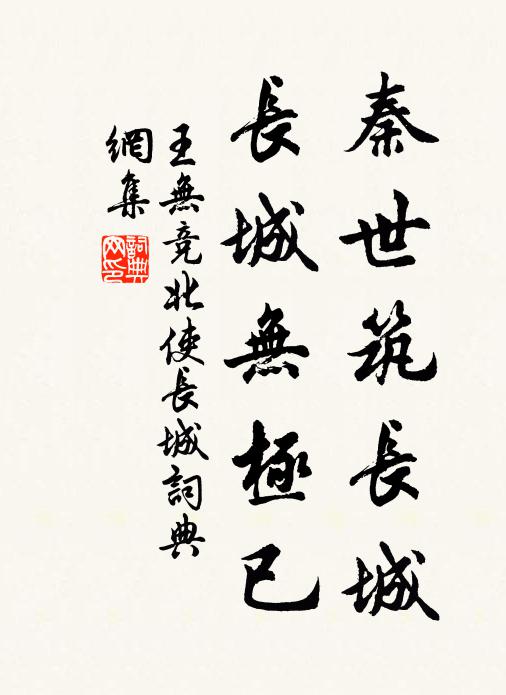 秦世筑長城
長城無極已
王無競北使長城詞典
網集
詞典
网印